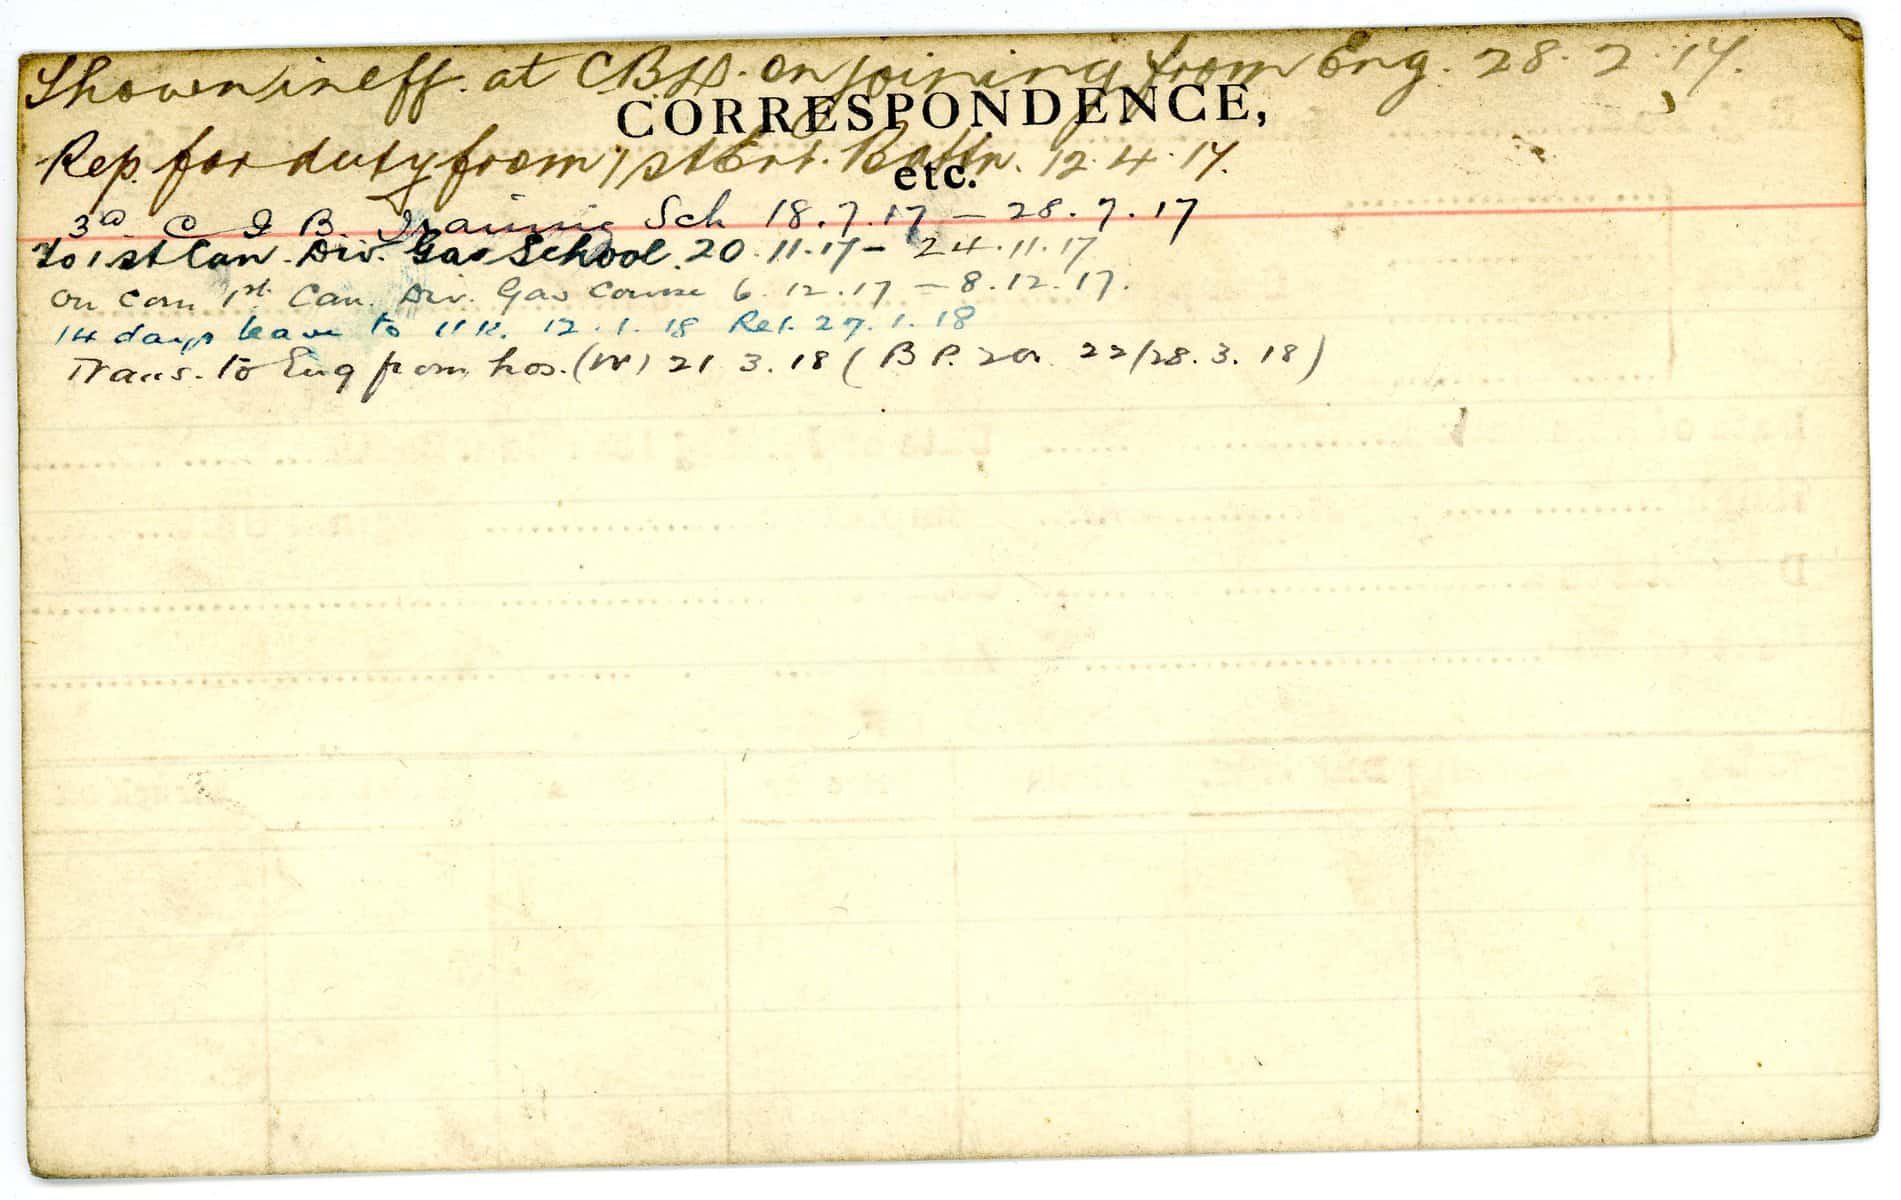 Shown ineff. at CBD. on joining from Eng. 28.2.17.
CORRESPONDENCE,
Rep. for duty from 1st Ent. Battn. 12.4.17.
etc.
3rd C I B Training Sch 18.7.17 – 28.7.17
To 1st Can. Div. Gas School. 20.11.17 – 24.11.17
On com 1st Can. Div. Gas Course 6.12.17 – 8.12.17.
14 days leave to U.K. 12.1.18 Ret. 27.1.18
Trans. to Eng from hos. (W) 21.3.18 (B.P. 22/28.3.18)